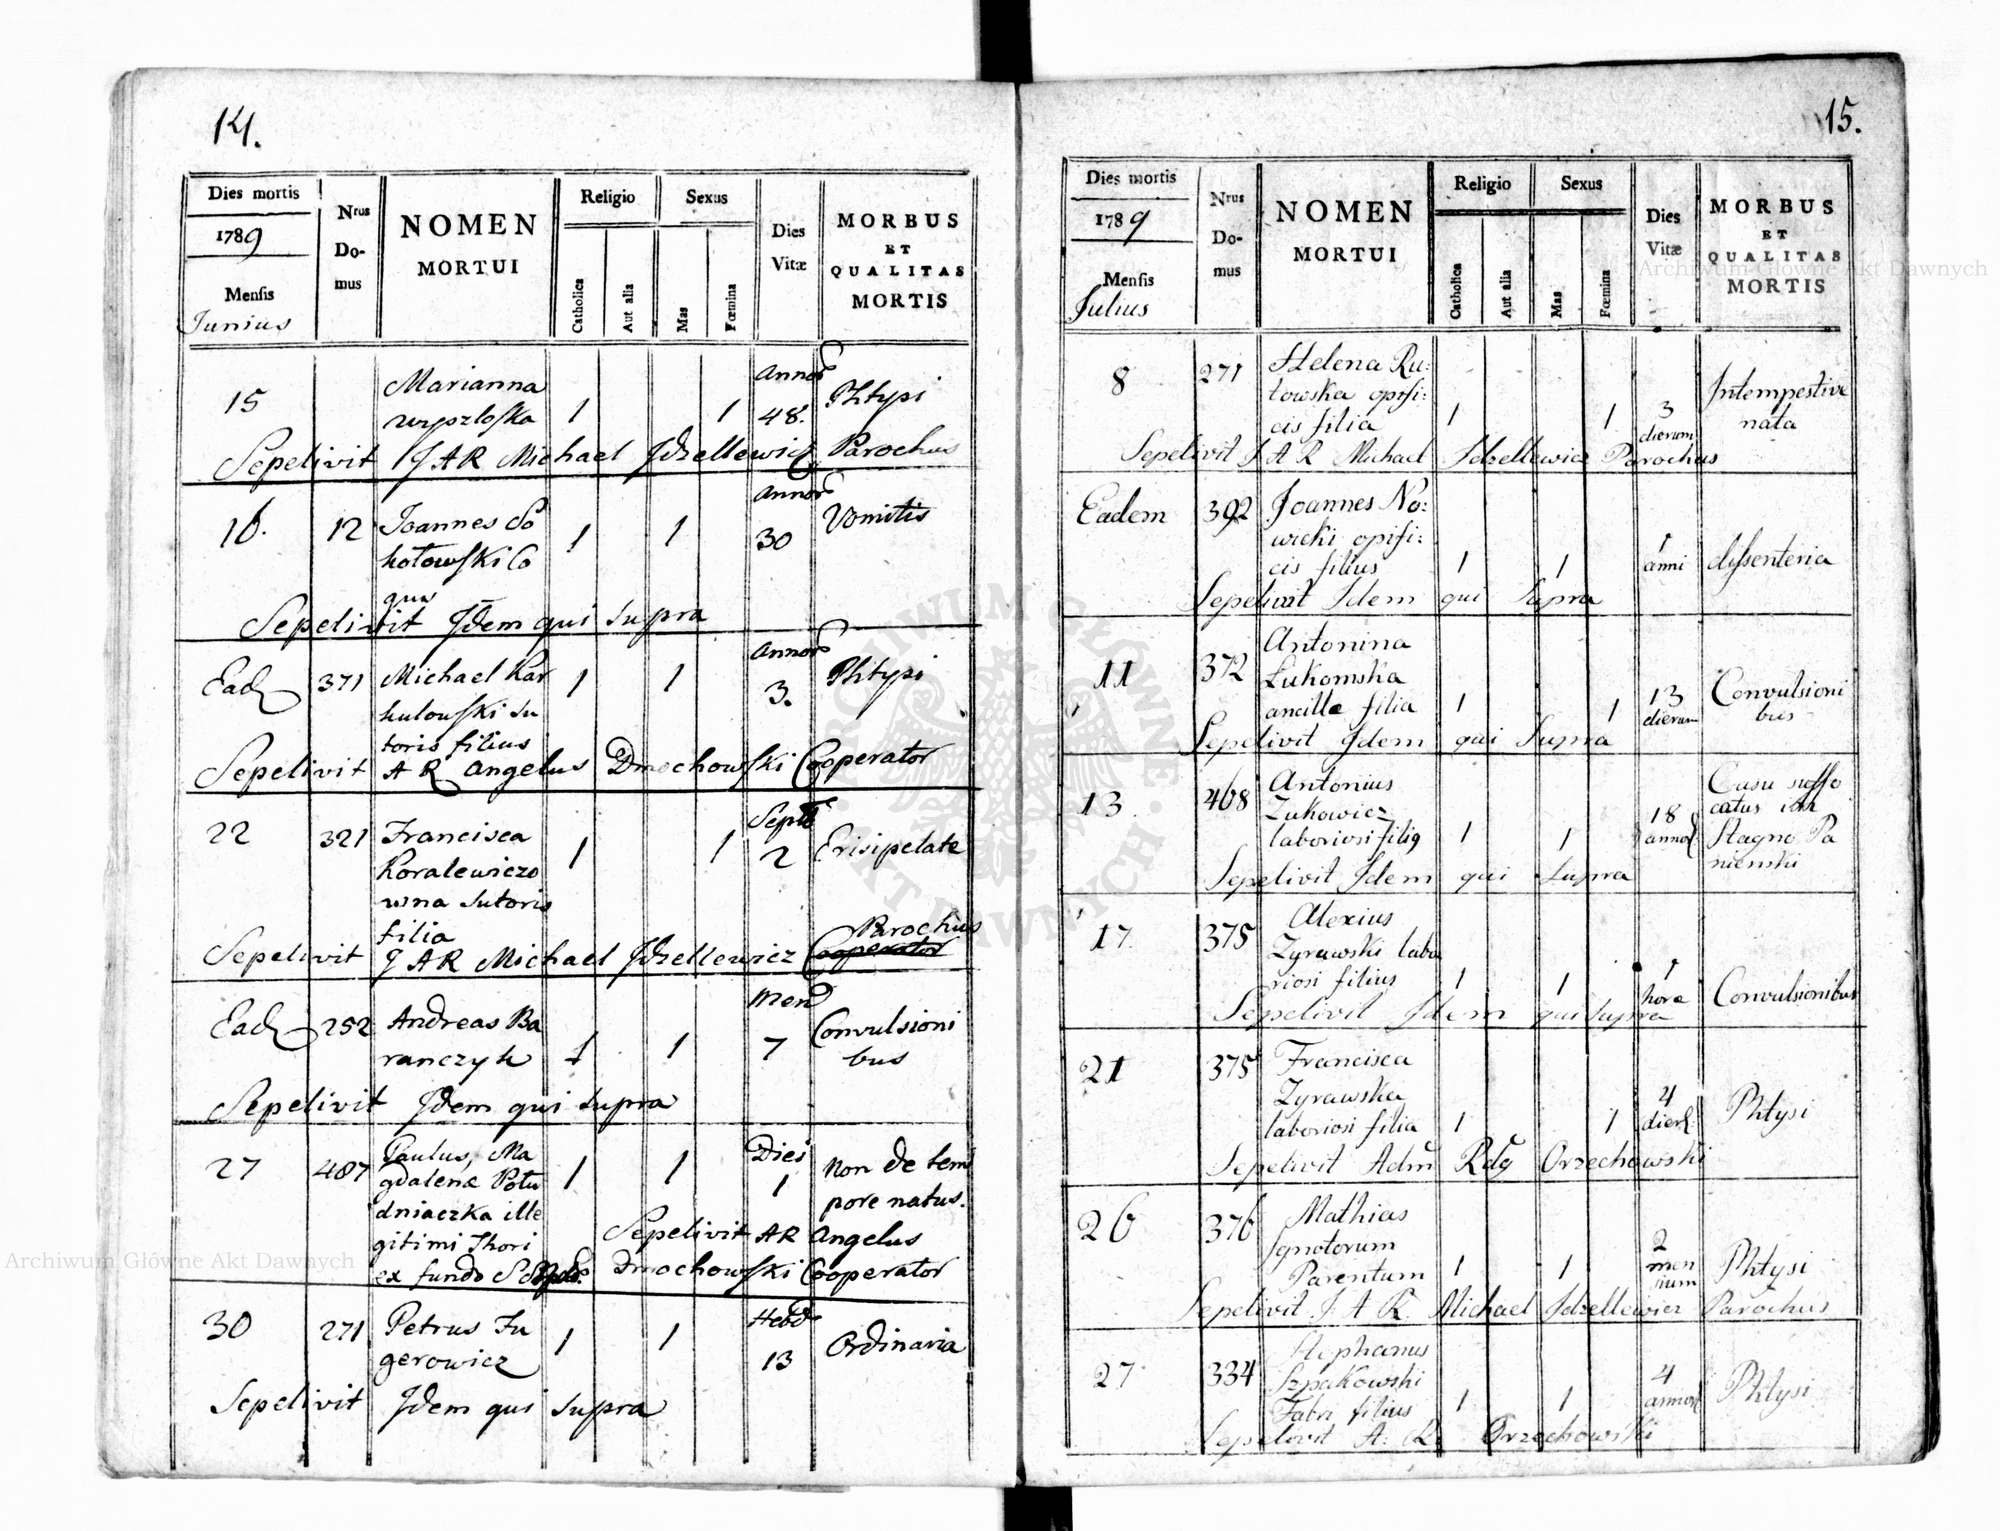 14.
Dies mortis
1789
Mensis
Junius
Nrus
Do-
mus
NOMEN
MORTUI
Religio
Catholica
Aut alia
Sexus
Mas
Fœmina
Dies
Vitæ
MORBUS
ET
QUALITAS
MORTIS
15
Marianna
1
1
Annor
48.
Phtysi
Sepelivit J A R Michael Jdzellewicz Parochus
16.
12
Joannes So
hołowski Co
quus
1
1
Annor
30
Vomitis
Sepelivit Jdem qui supra
Ead
371
Michael Kar
hulowski su
toris filius
1
1
Annor
3.
Phtysi
Sepelivit A R Angelus Dmochowski Cooperator
22
321
Francisca
Koralewiczo
wna sutoris
filia
1
1
Septi
2
Erisipelate
Sepelivit J A R Michael Jdzellewicz Cooperator Parochus
Ead
252
Andreas Ba
ranczyk
1
1
Mens
7
Convulsioni
bus
Sepelivit Jdem qui supra
27
487
Paulus, Ma
gdalenæ Połu
dniaczka ille
gitimi Thori
ex fundo
1
1
Diei
1
non de tem
pore natus.
Sepelivit AR Angelus
Dmochowski Cooperator
30
271
Petrus Fu
gerowicz
1
1
Hebd
13
Ordinaria
Sepelivit Jdem qui supra
15.
Dies mortis
1789
Mensis
Julius
Nrus
Do-
mus
NOMEN
MORTUI
Religio
Catholica
Aut alia
Sexus
Mas
Fœmina
Dies
Vitæ
MORBUS
ET
QUALITAS
MORTIS
8
271
Helena Ru:
towska opifi:
cis filia
1
1
3
dierum
Intempestive
nata
Sepelivit J A R Michael Jdzellewicz Parochus
Eadem
392
Joannes No:
wicki opifi:
cis filius
1
1
1
anni
dissenteria
Sepelivit Jdem qui Supra
11
372
Antonina
Łukomska
ancillæ filia
1
1
13
dierum
Convulsioni
bus
Sepelivit Jdem qui Supra
13
468
Antonius
Zukowicz
laboriosi filiq
1
1
18
annor
Casu suffo
catus in
Stagno Pa
nienski
Sepelivit Jdem qui Supra
17
375
Alexius
Zyrawski labo
riosi filius
1
1
1
hora
Convulsionibus
Sepelivit Jdem qui Supra
21
375
Francisca
Zyrawska
laboriosi filia
1
1
4
dier
Phtysi
Sepelivit Adm Rdg Orzechowski
26
376
Mathias
Ignotorum
Parentum
1
1
2
men
sium
Phtysi
Sepelivit J. A R. Michael Jdzellewicz Parochus
27
334
Stephanus
Szpakowski
Fabri filius
1
1
4
annor
Phtysi
Sepelivit A: R. Orzechowski
ARCHIWUM GŁÓWNE AKT DAWNYCH
Archiwum Główne Akt Dawnych
Archiwum Główne Akt Dawnych